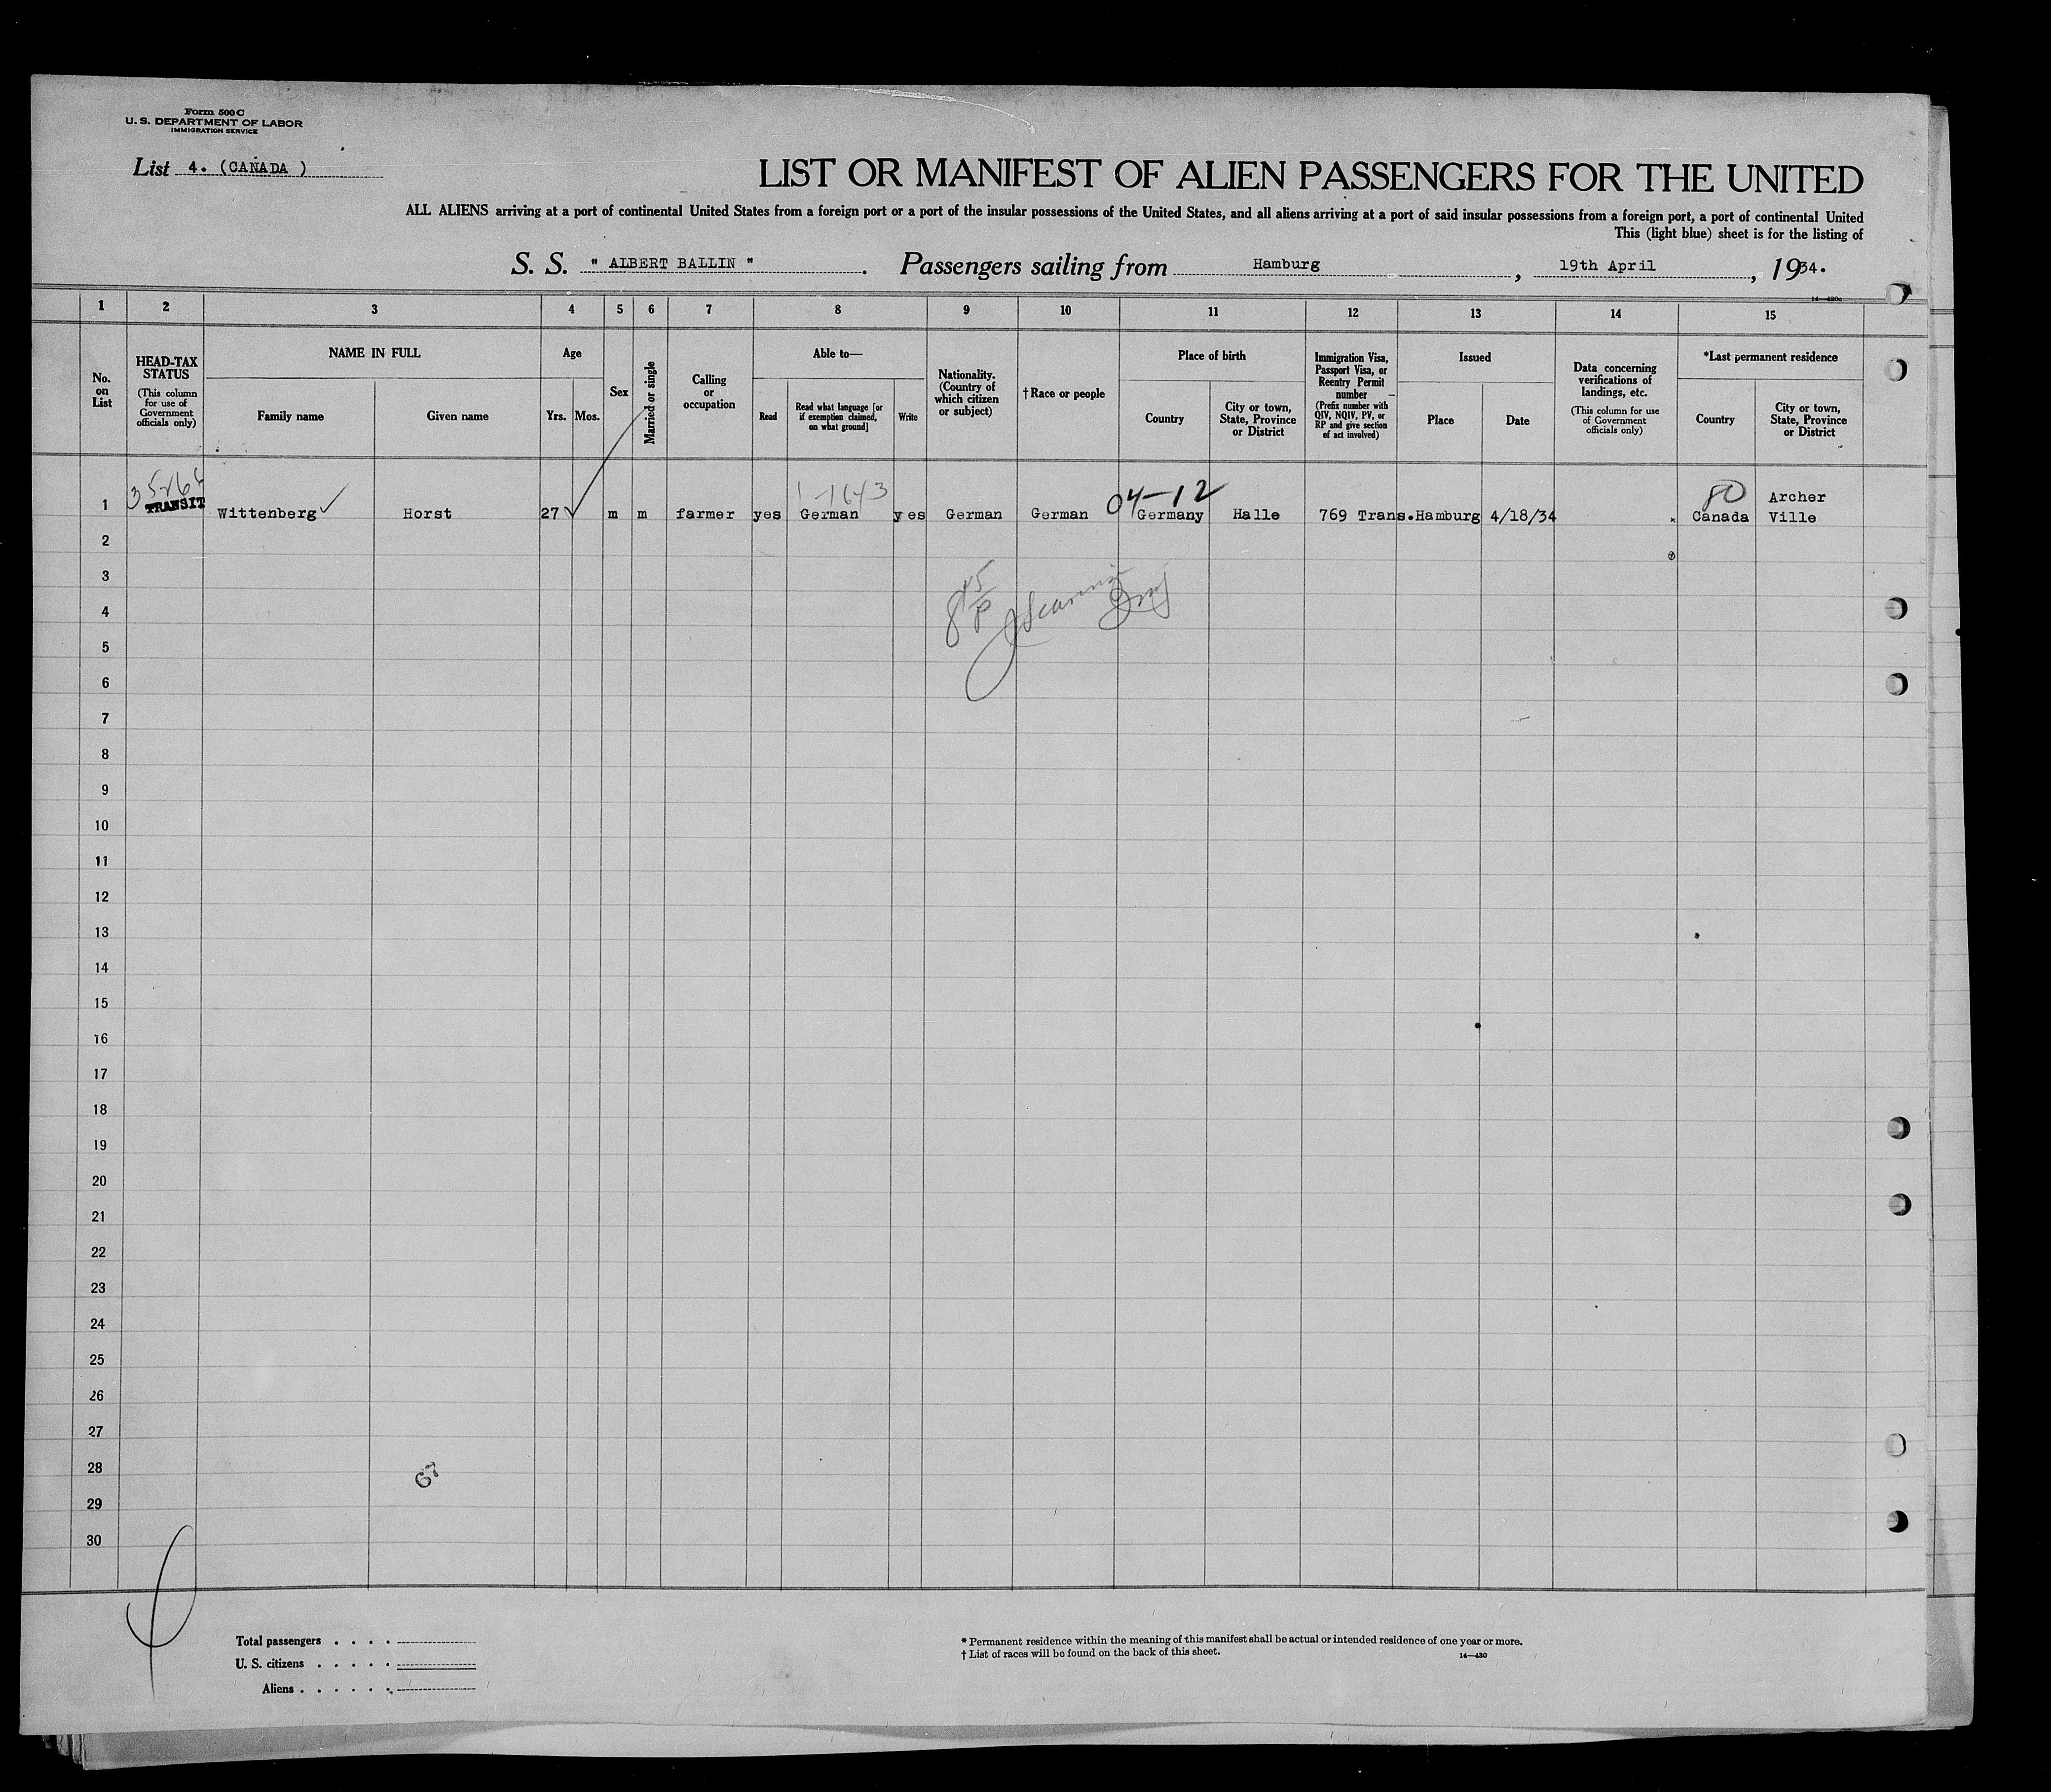 Form 500 C
U. S. DEPARTMENT OF LABOR
IMMIGRATION SERVICE
List 4. (CANADA )
LIST OR MANIFEST OF ALIEN PASSENGERS FOR THE UNITED
ALL ALIENS arriving at a port of continental United States from a foreign port or a port of the insular possessions of the United States, and all aliens arriving at a port of said insular possessions from a foreign port, a port of continental United
This (light blue) sheet is for the listing of
S. S. " ALBERT BALLIN " . Passengers sailing from Hamburg , 19th April , 1934.
14—430c
1 2 3 4 5 6 7 8 9 10 11 12 13 14 15
No. on List
HEAD-TAX STATUS
(This column for use of Government officials only)
NAME IN FULL
Family name
Given name
Age
Yrs. Mos.
Sex
Married or single
Calling or occupation
Able to—
Read
Read what language [or if exemption claimed, on what ground]
Write
Nationality. (Country of which citizen or subject)
† Race or people
Place of birth
Country
City or town, State, Province or District
Immigration Visa, Passport Visa, or Reentry Permit number
(Prefix number with QIV, NQIV, PV, or RP and give section of act involved)
Issued
Place
Date
Data concerning verifications of landings, etc.
(This column for use of Government officials only)
*Last permanent residence
Country
City or town, State, Province or District
1-1643 04-12 80 Archer
1 TRANSIT Wittenberg Horst 27 m m farmer yes German yes German German Germany Halle 769 Trans.Hamburg 4/18/34 Canada Ville
2
3
4
5
6
7
8
9
10
11
12
13
14
15
16
17
18
19
20
21
22
23
24
25
26
27
28
67
29
30
Total passengers . . . .
U. S. citizens . . . . .
Aliens . . . . . .
* Permanent residence within the meaning of this manifest shall be actual or intended residence of one year or more.
† List of races will be found on the back of this sheet.
14—430